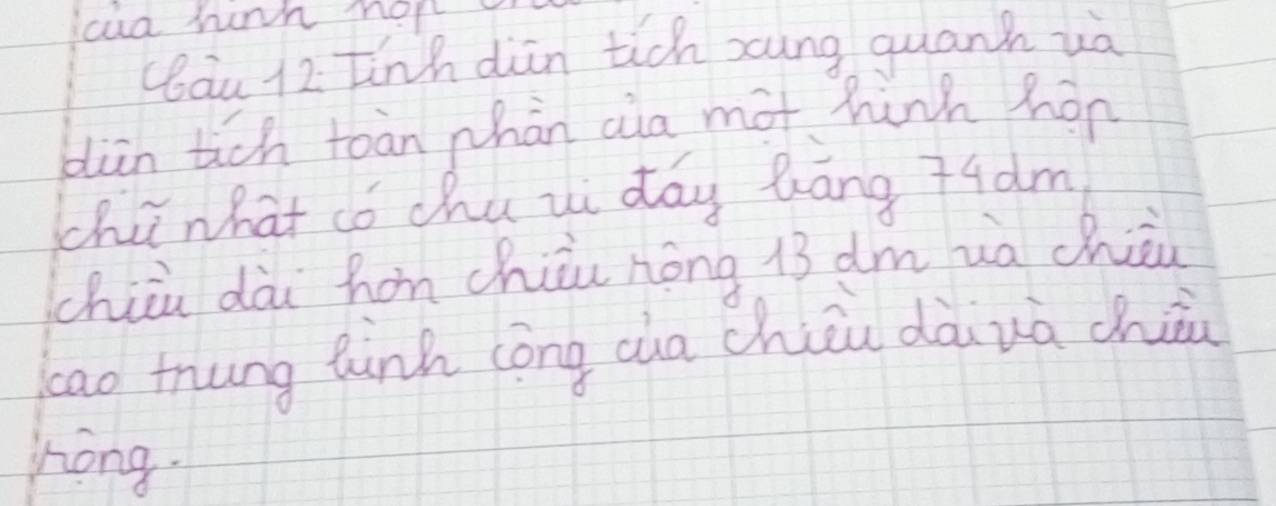 của hình hộp
Câu 12: Tính diện tích xung quanh và
diện tích toàn phần của một hình hộp
chữ nhật có chu vi đáy bằng 74dm,
chiều dài hơn chiều rộng 13 dm và chiều
cao trung bình cộng của chiều dài và chiều
rộng.